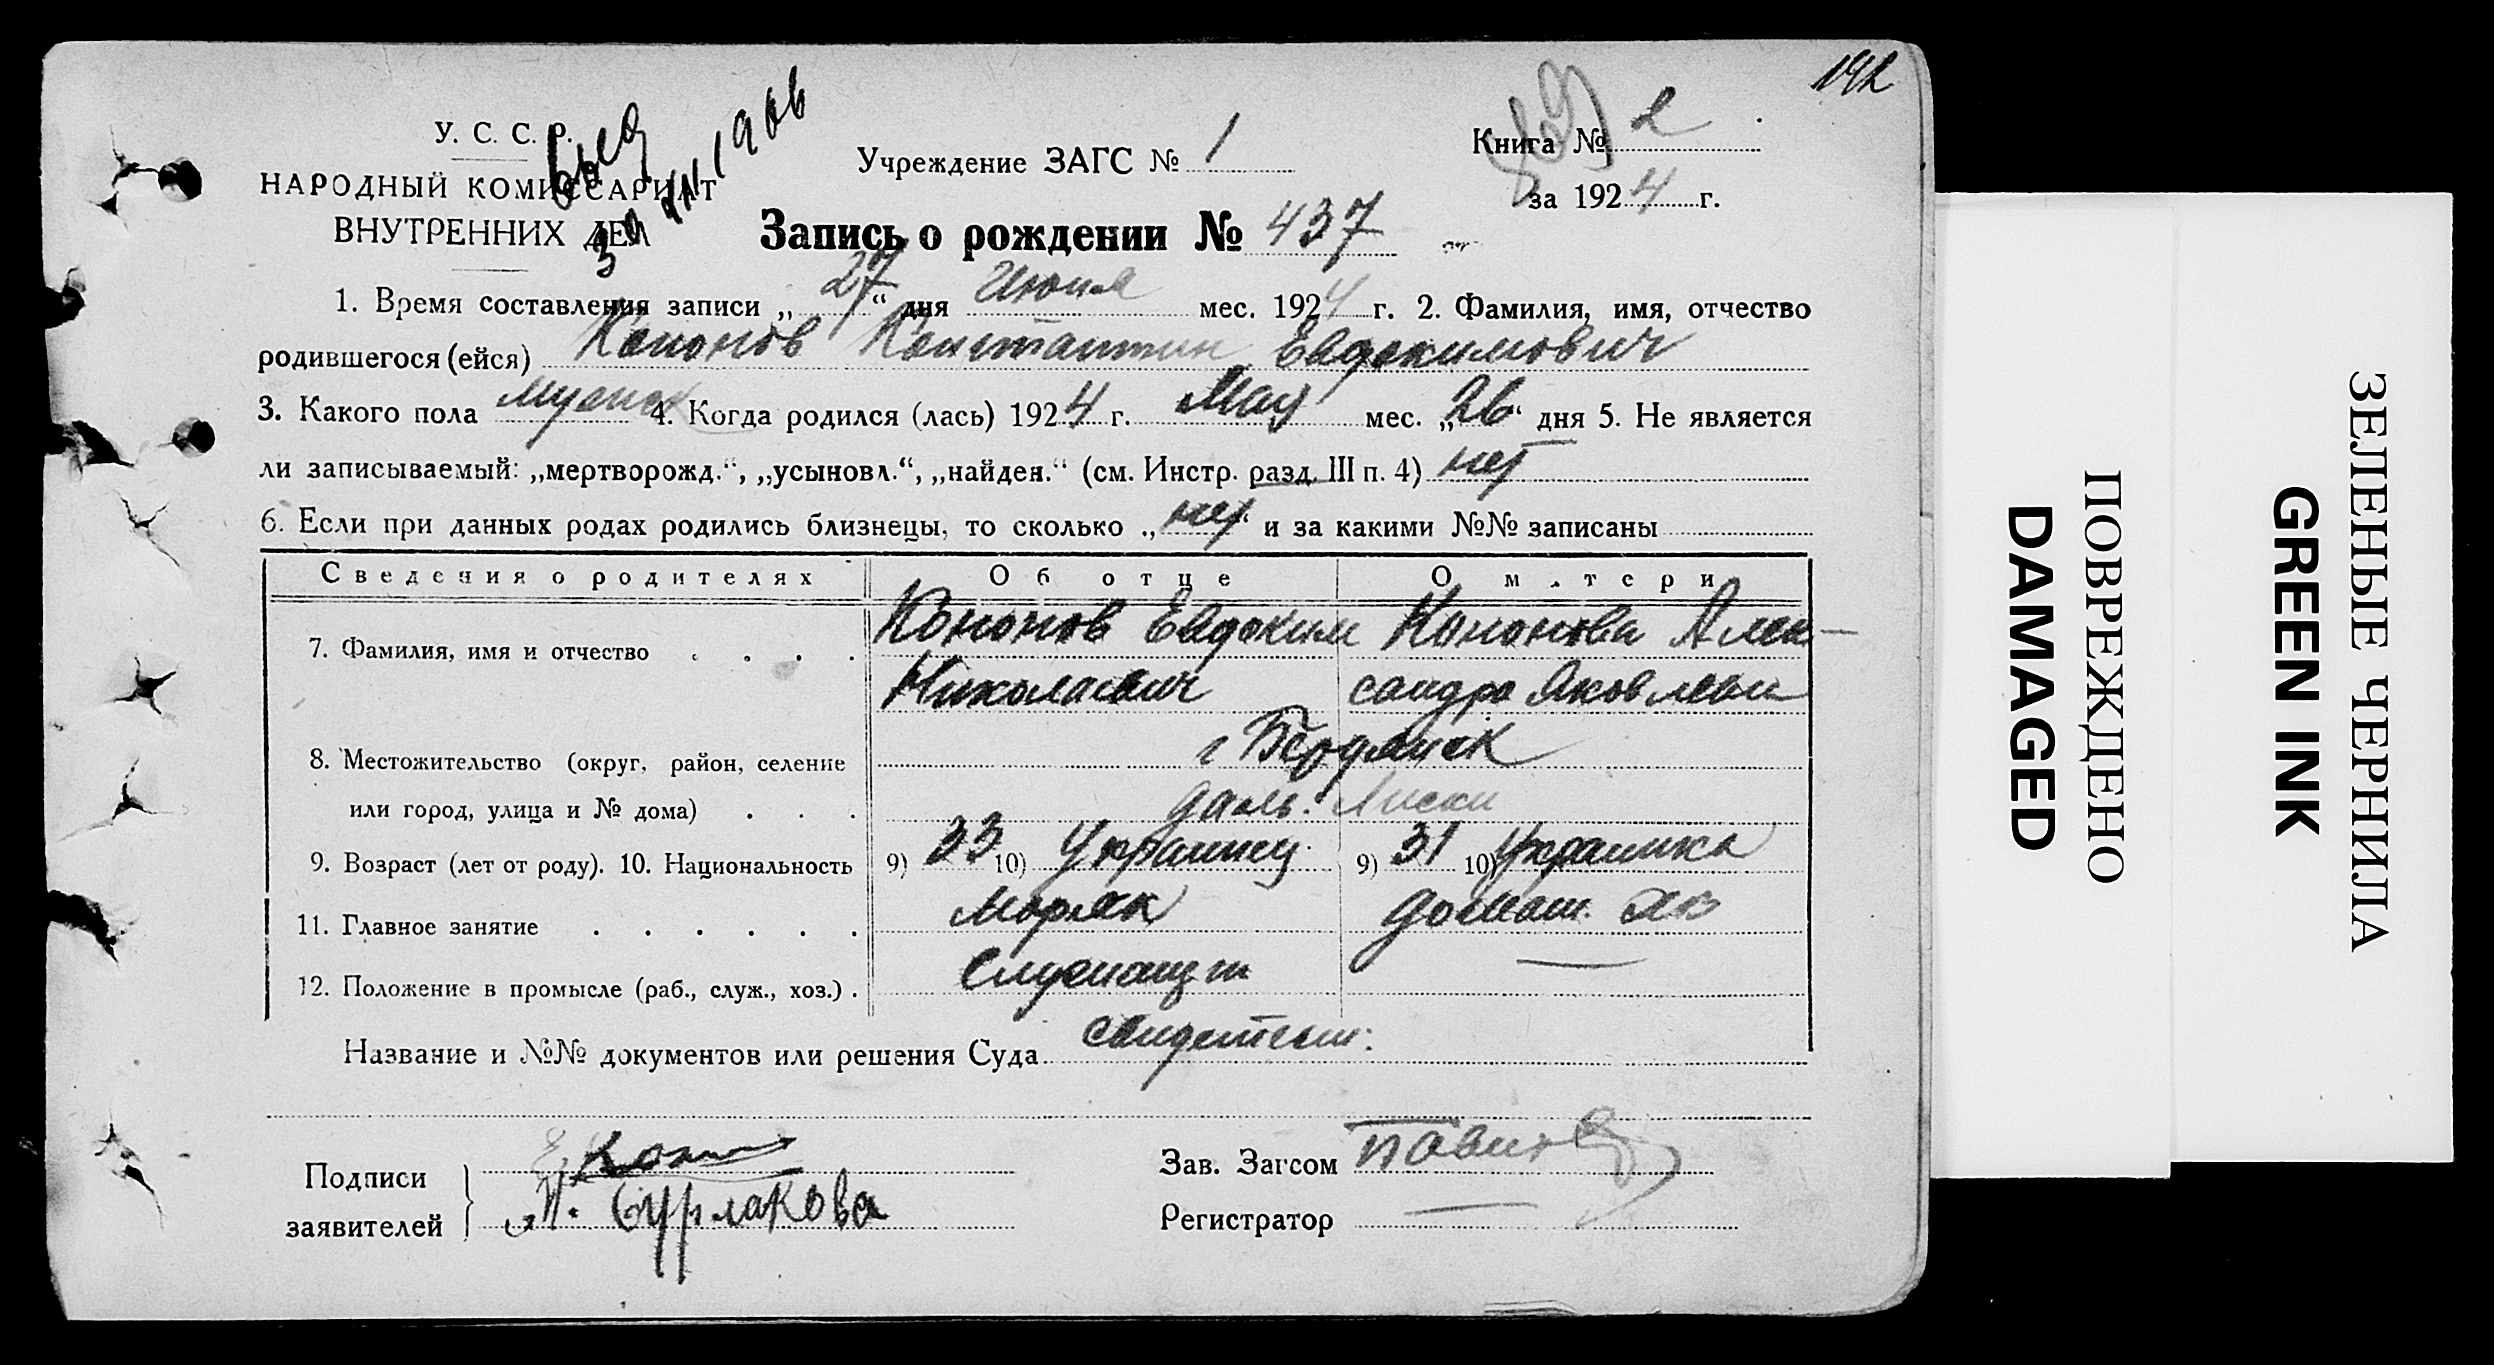 192
У. С. С. Р.
НАРОДНЫЙ КОМИССАРИАТ
ВНУТРЕННИХ ДЕЛ
Учреждение ЗАГС № 1
Книга № 2
за 1924 г.
Запись о рождении № 437
1. Время составления записи „27“ дня Июня мес. 1924 г. 2. Фамилия, имя, отчество
родившегося (ейся) Кононов Константин Евдокимович
3. Какого пола мужск 4. Когда родился (лась) 1924 г. Мая мес. „26“ дня 5. Не является
ли записываемый: „мертворожд.“, „усыновл.“, „найден.“ (см. Инстр. разд. III п. 4) нет
6. Если при данных родах родились близнецы, то сколько „нет“ и за какими №№ записаны
Сведения о родителях Об отце О матери
7. Фамилия, имя и отчество . . . . Кононов Евдоким Кононова Алек-
Николаевич сандра Яковлевн
8. Местожительство (округ, район, селение г Бердянск
или город, улица и № дома) . . . даль. Лиски
9. Возраст (лет от роду). 10. Национальность 9) 33 10) Украинец 9) 31 10) Украинка
11. Главное занятие . . . . . . Моряк домаш. хоз
12. Положение в промысле (раб., служ., хоз.) . Служащ —
Название и №№ документов или решения Суда
Подписи
заявителей
Бурлакова
Зав. Загсом
Регистратор —
ПОВРЕЖДЕНО
DAMAGED
ЗЕЛЕНЫЕ ЧЕРНИЛА
GREEN INK